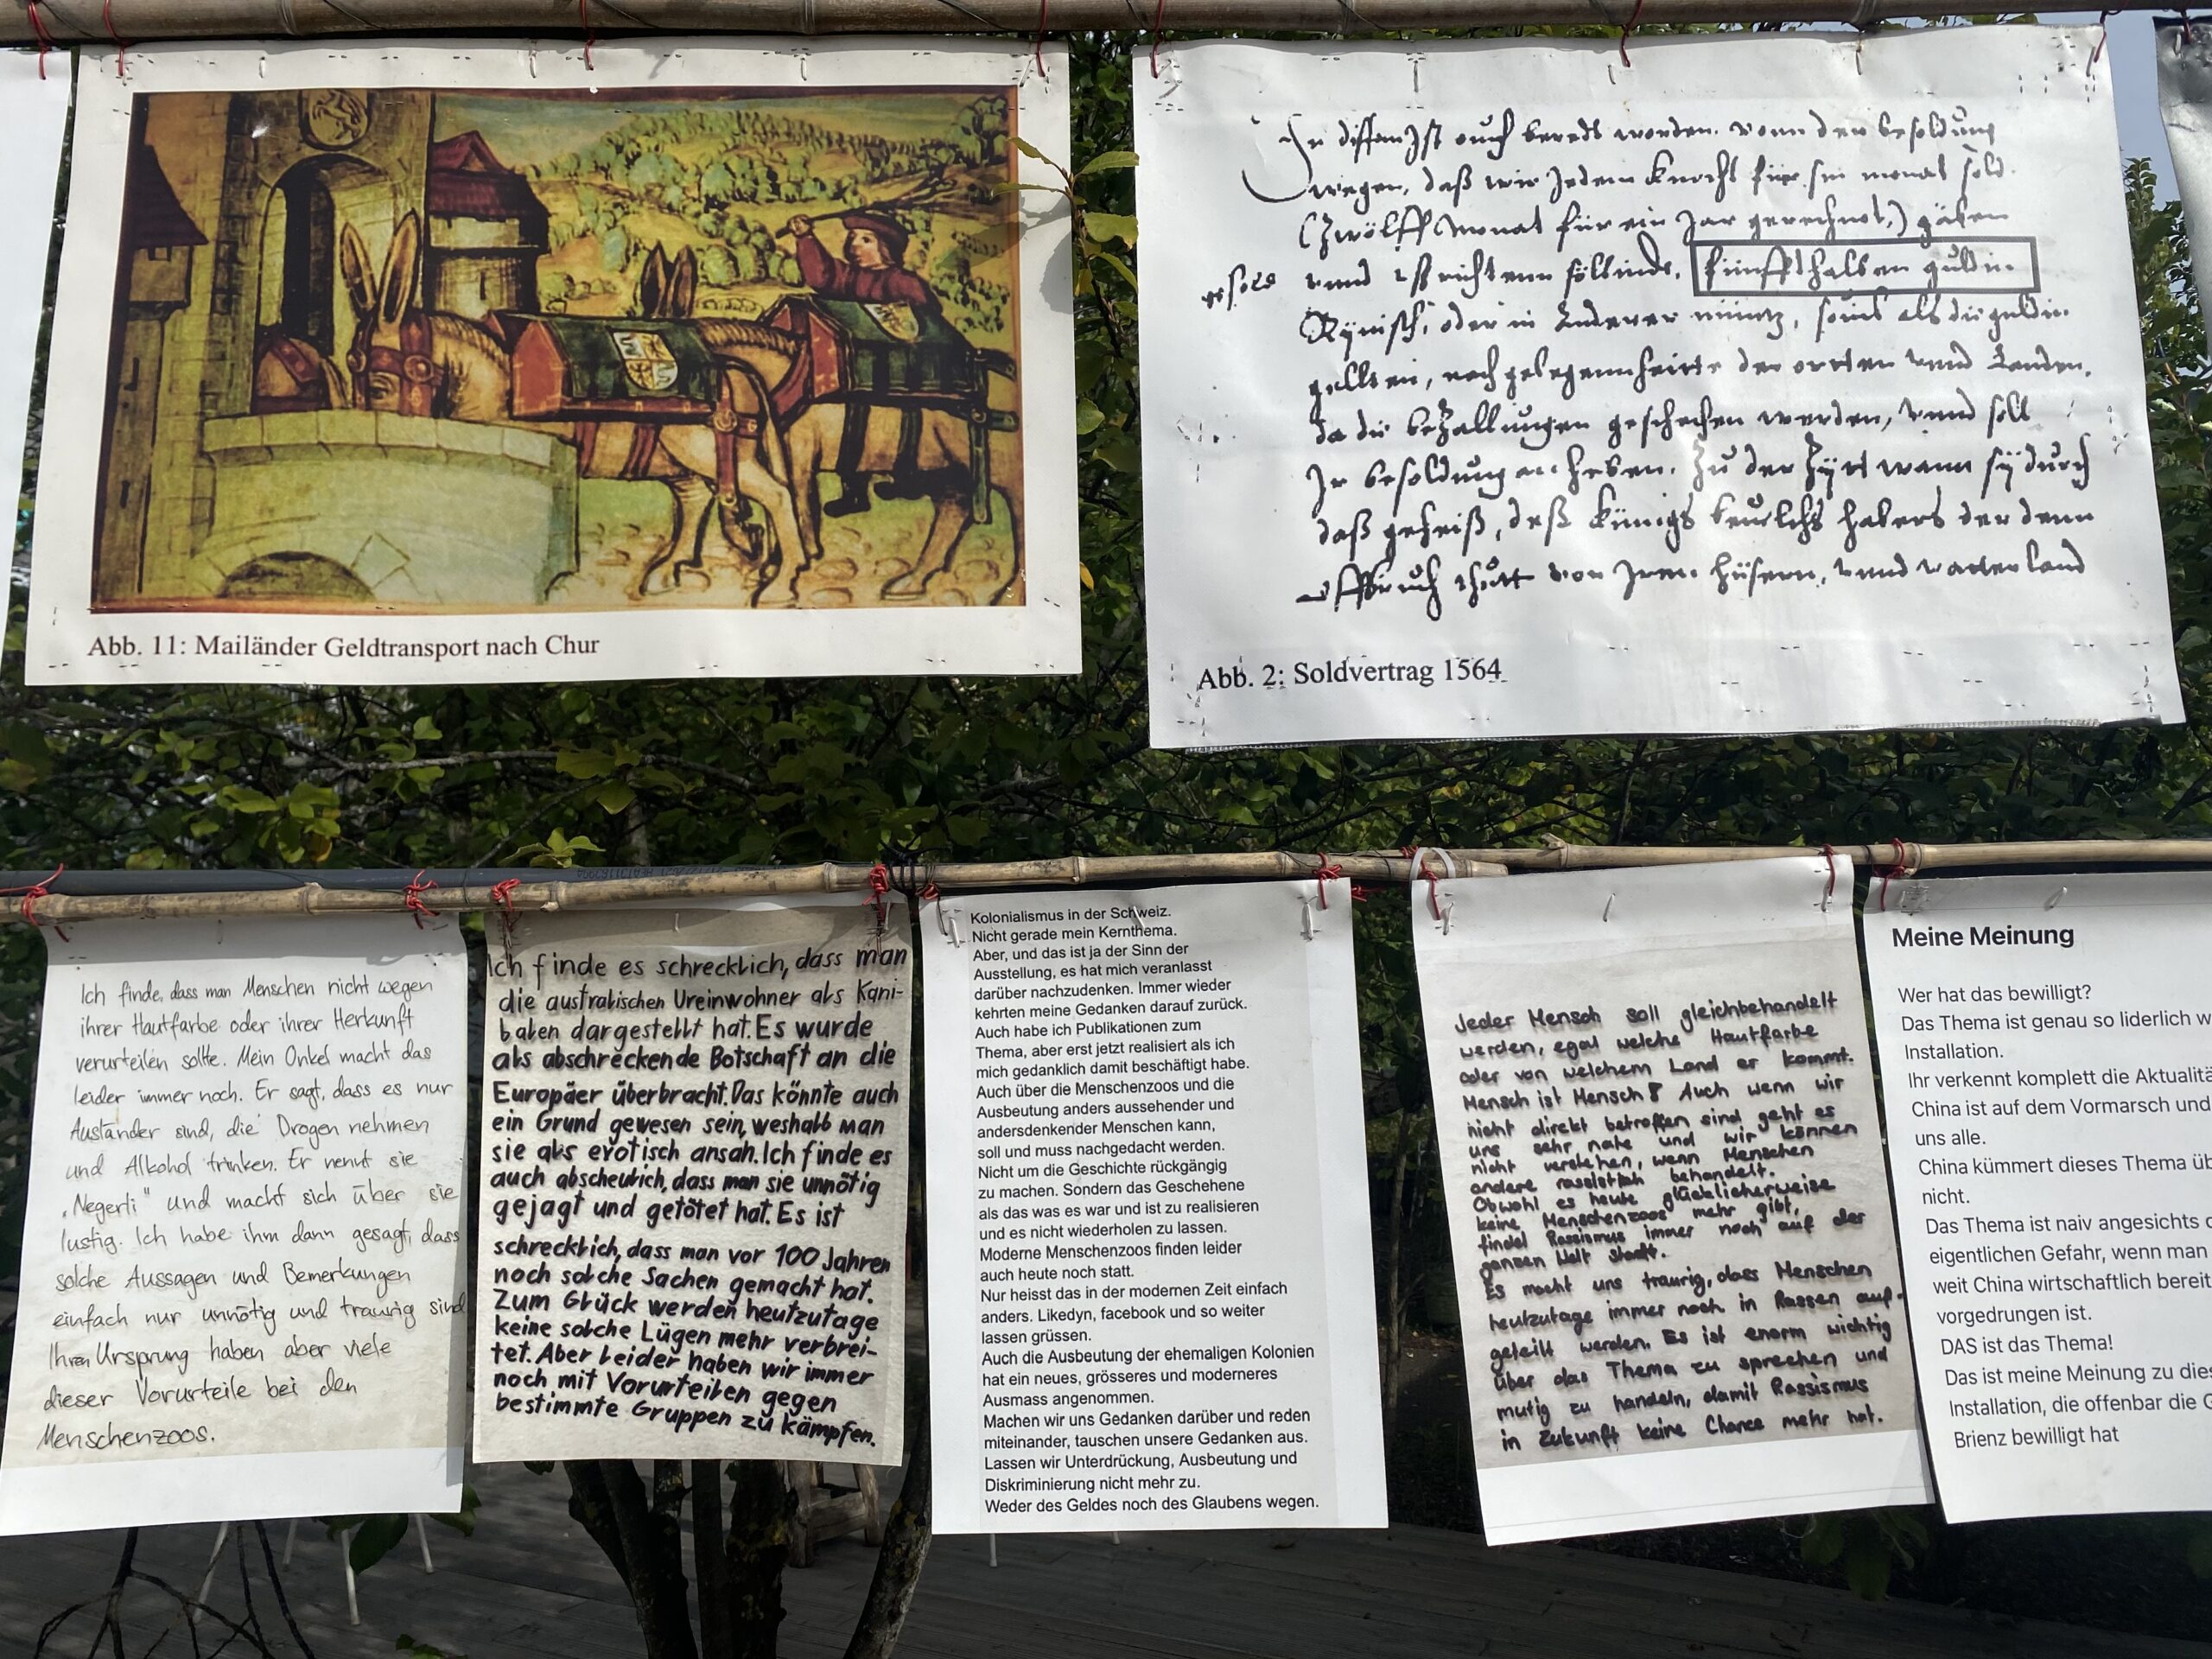 Abb. 11: Mailänder Geldtransport nach Chur
wegen, daß wir Jedem Knecht für sin monat sold
(Zwölff monat für ein Jar gerechnet,) gäben
fünffthalben guldin
Rÿnisch, oder in Anderer müntz, souil als die guldin
gelten, nach gelegennheitt der orten vnnd Landen,
da die bezallungen geschechen werden, vnnd soll
Ir besoldung an heben. Zu der Zÿt wann sÿ durch
daß geheiß, deß Künigs
von Iren hüsern, vnnd vatterland
Abb. 2: Soldvertrag 1564
Ich finde, dass man Menschen nicht wegen
ihrer Hautfarbe oder ihrer Herkunft
verurteilen sollte. Mein Onkel macht das
leider immer noch. Er sagt, dass es nur
Ausländer sind, die Drogen nehmen
und Alkohol trinken. Er nennt sie
„Negerli" und macht sich über sie
lustig. Ich habe ihm dann gesagt, dass
solche Aussagen und Bemerkungen
einfach nur unnötig und traurig sind
Ihren Ursprung haben aber viele
dieser Vorurteile bei den
Menschenzoos.
Ich finde es schrecklich, dass man
die australischen Ureinwohner als Kani-
balen dargestellt hat. Es wurde
als abschreckende Botschaft an die
Europäer überbracht. Das könnte auch
ein Grund gewesen sein, weshalb man
sie als exotisch ansah. Ich finde es
auch abscheulich, dass man sie unnötig
gejagt und getötet hat. Es ist
schrecklich, dass man vor 100 Jahren
noch solche Sachen gemacht hat.
Zum Glück werden heutzutage
keine solche Lügen mehr verbrei-
tet. Aber leider haben wir immer
noch mit Vorurteilen gegen
bestimmte Gruppen zu kämpfen.
Kolonialismus in der Schweiz.
Nicht gerade mein Kernthema.
Aber, und das ist ja der Sinn der
Ausstellung, es hat mich veranlasst
darüber nachzudenken. Immer wieder
kehrten meine Gedanken darauf zurück.
Auch habe ich Publikationen zum
Thema, aber erst jetzt realisiert als ich
mich gedanklich damit beschäftigt habe.
Auch über die Menschenzoos und die
Ausbeutung anders aussehender und
andersdenkender Menschen kann,
soll und muss nachgedacht werden.
Nicht um die Geschichte rückgängig
zu machen. Sondern das Geschehene
als das was es war und ist zu realisieren
und es nicht wiederholen zu lassen.
Moderne Menschenzoos finden leider
auch heute noch statt.
Nur heisst das in der modernen Zeit einfach
anders. Likedyn, facebook und so weiter
lassen grüssen.
Auch die Ausbeutung der ehemaligen Kolonien
hat ein neues, grösseres und moderneres
Ausmass angenommen.
Machen wir uns Gedanken darüber und reden
miteinander, tauschen unsere Gedanken aus.
Lassen wir Unterdrückung, Ausbeutung und
Diskriminierung nicht mehr zu.
Weder des Geldes noch des Glaubens wegen.
Jeder Mensch soll gleichbehandelt
werden, egal welche Hautfarbe
oder von welchem Land er kommt.
Mensch ist Mensch! Auch wenn wir
nicht direkt betroffen sind, geht es
uns sehr nahe und wir können
nicht verstehen, wenn Menschen
andere rassistisch behandelt.
Obwohl es heute glücklicherweise
keine Menschenzoos mehr gibt,
findet Rassismus immer noch auf der
ganzen Welt statt.
Es macht uns traurig, dass Menschen
heutzutage immer noch in Rassen auf-
geteilt werden. Es ist enorm wichtig
über das Thema zu sprechen und
mutig zu handeln, damit Rassismus
in Zukunft keine Chance mehr hat.
Meine Meinung
Wer hat das bewilligt?
Das Thema ist genau so liderlich w
Installation.
Ihr verkennt komplett die Aktualitä
China ist auf dem Vormarsch und
uns alle.
China kümmert dieses Thema üb
nicht.
Das Thema ist naiv angesichts
eigentlichen Gefahr, wenn man
weit China wirtschaftlich bereit
vorgedrungen ist.
DAS ist das Thema!
Das ist meine Meinung zu dies
Installation, die offenbar die G
Brienz bewilligt hat